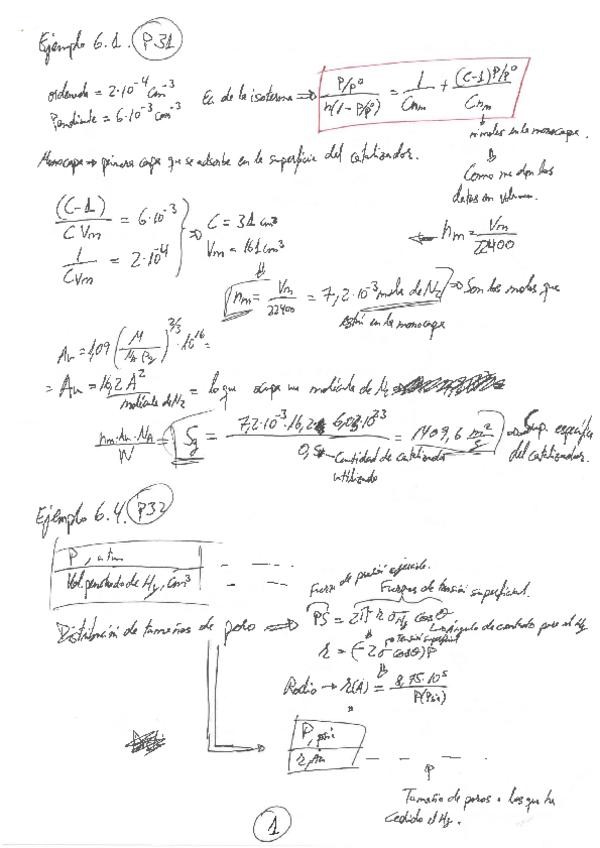 Ejemplo 6.1. P31
ordenada = 2·10⁻⁴ cm⁻³
Pendiente = 6·10⁻³ cm⁻³
Ec de la isoterma ⇒ (P/p⁰)/(n(1-P/p⁰)) = 1/(C nm) + ((C-1) P/p⁰)/(C nm)
nº moles en la monocapa.
Monocapa → primera capa que se adsorbe en la superficie del catalizador.
Como me dan los
datos en volumen.
(C-1)/(C Vm) = 6·10⁻³
1/(C Vm) = 2·10⁻⁴
⇒ C = 31 cm³
Vm = 161 cm³
← nm = Vm/22400
nm = Vm/22400 = 7,2·10⁻³ moles de N₂ ⇒ Son los moles que
están en la monocapa
Am = 1,09 (M/(NA ρ))^(2/3) · 10¹⁶ =
= Am = 16,2 Å²/molécula de N₂ = lo que ocupa una molécula de N₂
(nm·Am·NA)/W = Sg = (7,2·10⁻³·16,2 6,03·10²³)/0,5 = 1409,6 m²/g ⇒ Sup. específica
del catalizador.
Cantidad de catalizador
utilizado
Ejemplo 6.4. P32
P, atm
Vol. penetrado de Hg, cm³
Fuerza de presión ejercida.
Fuerzas de tensión superficial.
Distribución de tamaños de poro ⇒ PS = 2π r σHg cos θ
ángulo de contacto para el Hg
tensión superficial
r = (-2σ cosθ)P
Radio → r(Å) = 8,75·10⁵/P(Psia)
P, psia
r, Å
Tamaño de poros a los que ha
cedido el Hg.
1